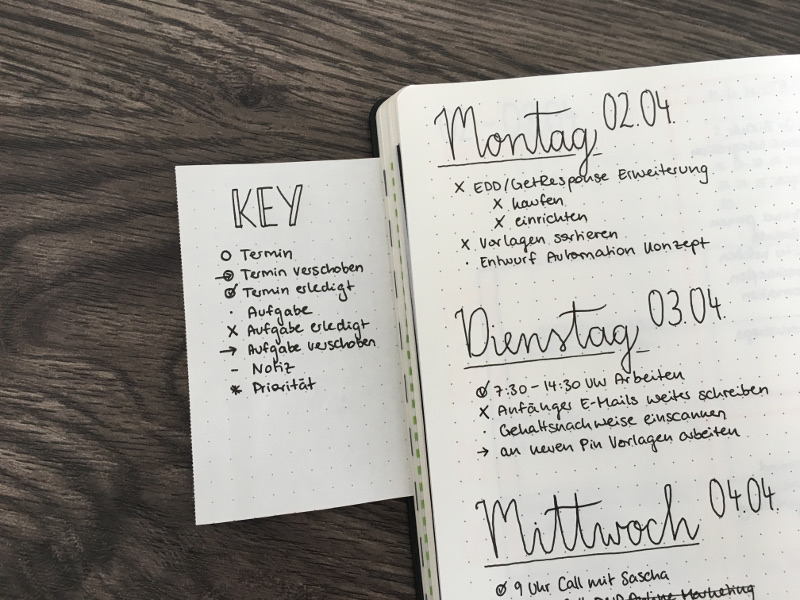 KEY
o Termin
Termin verschoben
Termin erledigt
· Aufgabe
x Aufgabe erledigt
→ Aufgabe verschoben
– Notiz
* Priorität
Montag 02.04.
x EDD/GetResponse Erweiterung
x kaufen
x einrichten
x Vorlagen sortieren
· Entwurf Automation Konzept
Dienstag 03.04.
7:30 – 14:30 Uhr Arbeiten
x Anfänger E-Mails weiter schreiben
· Gehaltsnachweise einscannen
→ an neuen Pin Vorlagen arbeiten
Mittwoch 04.04.
9 Uhr Call mit Sascha
Online Marketing